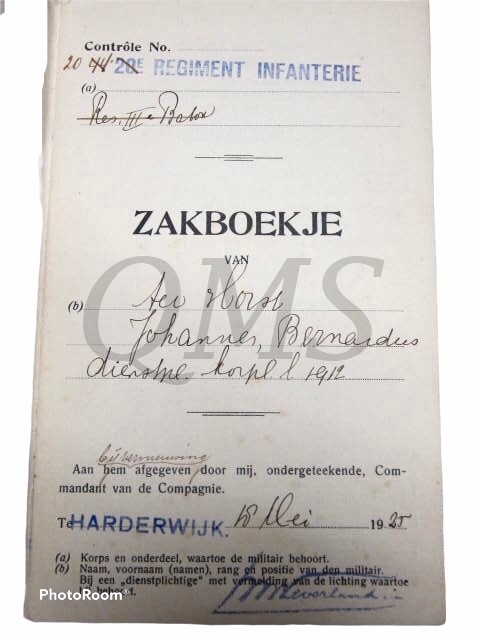 Contrôle No.
20 20E REGIMENT INFANTERIE
(a)
Res. III e Baton
ZAKBOEKJE
VAN
QMS
(b) ter Horst
Johannes, Bernardus
dienstpl. korpl. l 1912
bij vernieuwing
Aan hem afgegeven door mij, ondergeteekende, Com-
mandant van de Compagnie.
Te HARDERWIJK. 18 Mei 1925
(a) Korps en onderdeel, waartoe de militair behoort.
(b) Naam, voornaam (namen), rang en positie van den militair.
Bij een „dienstplichtige” met vermelding van de lichting waartoe
hij behoort.
PhotoRoom